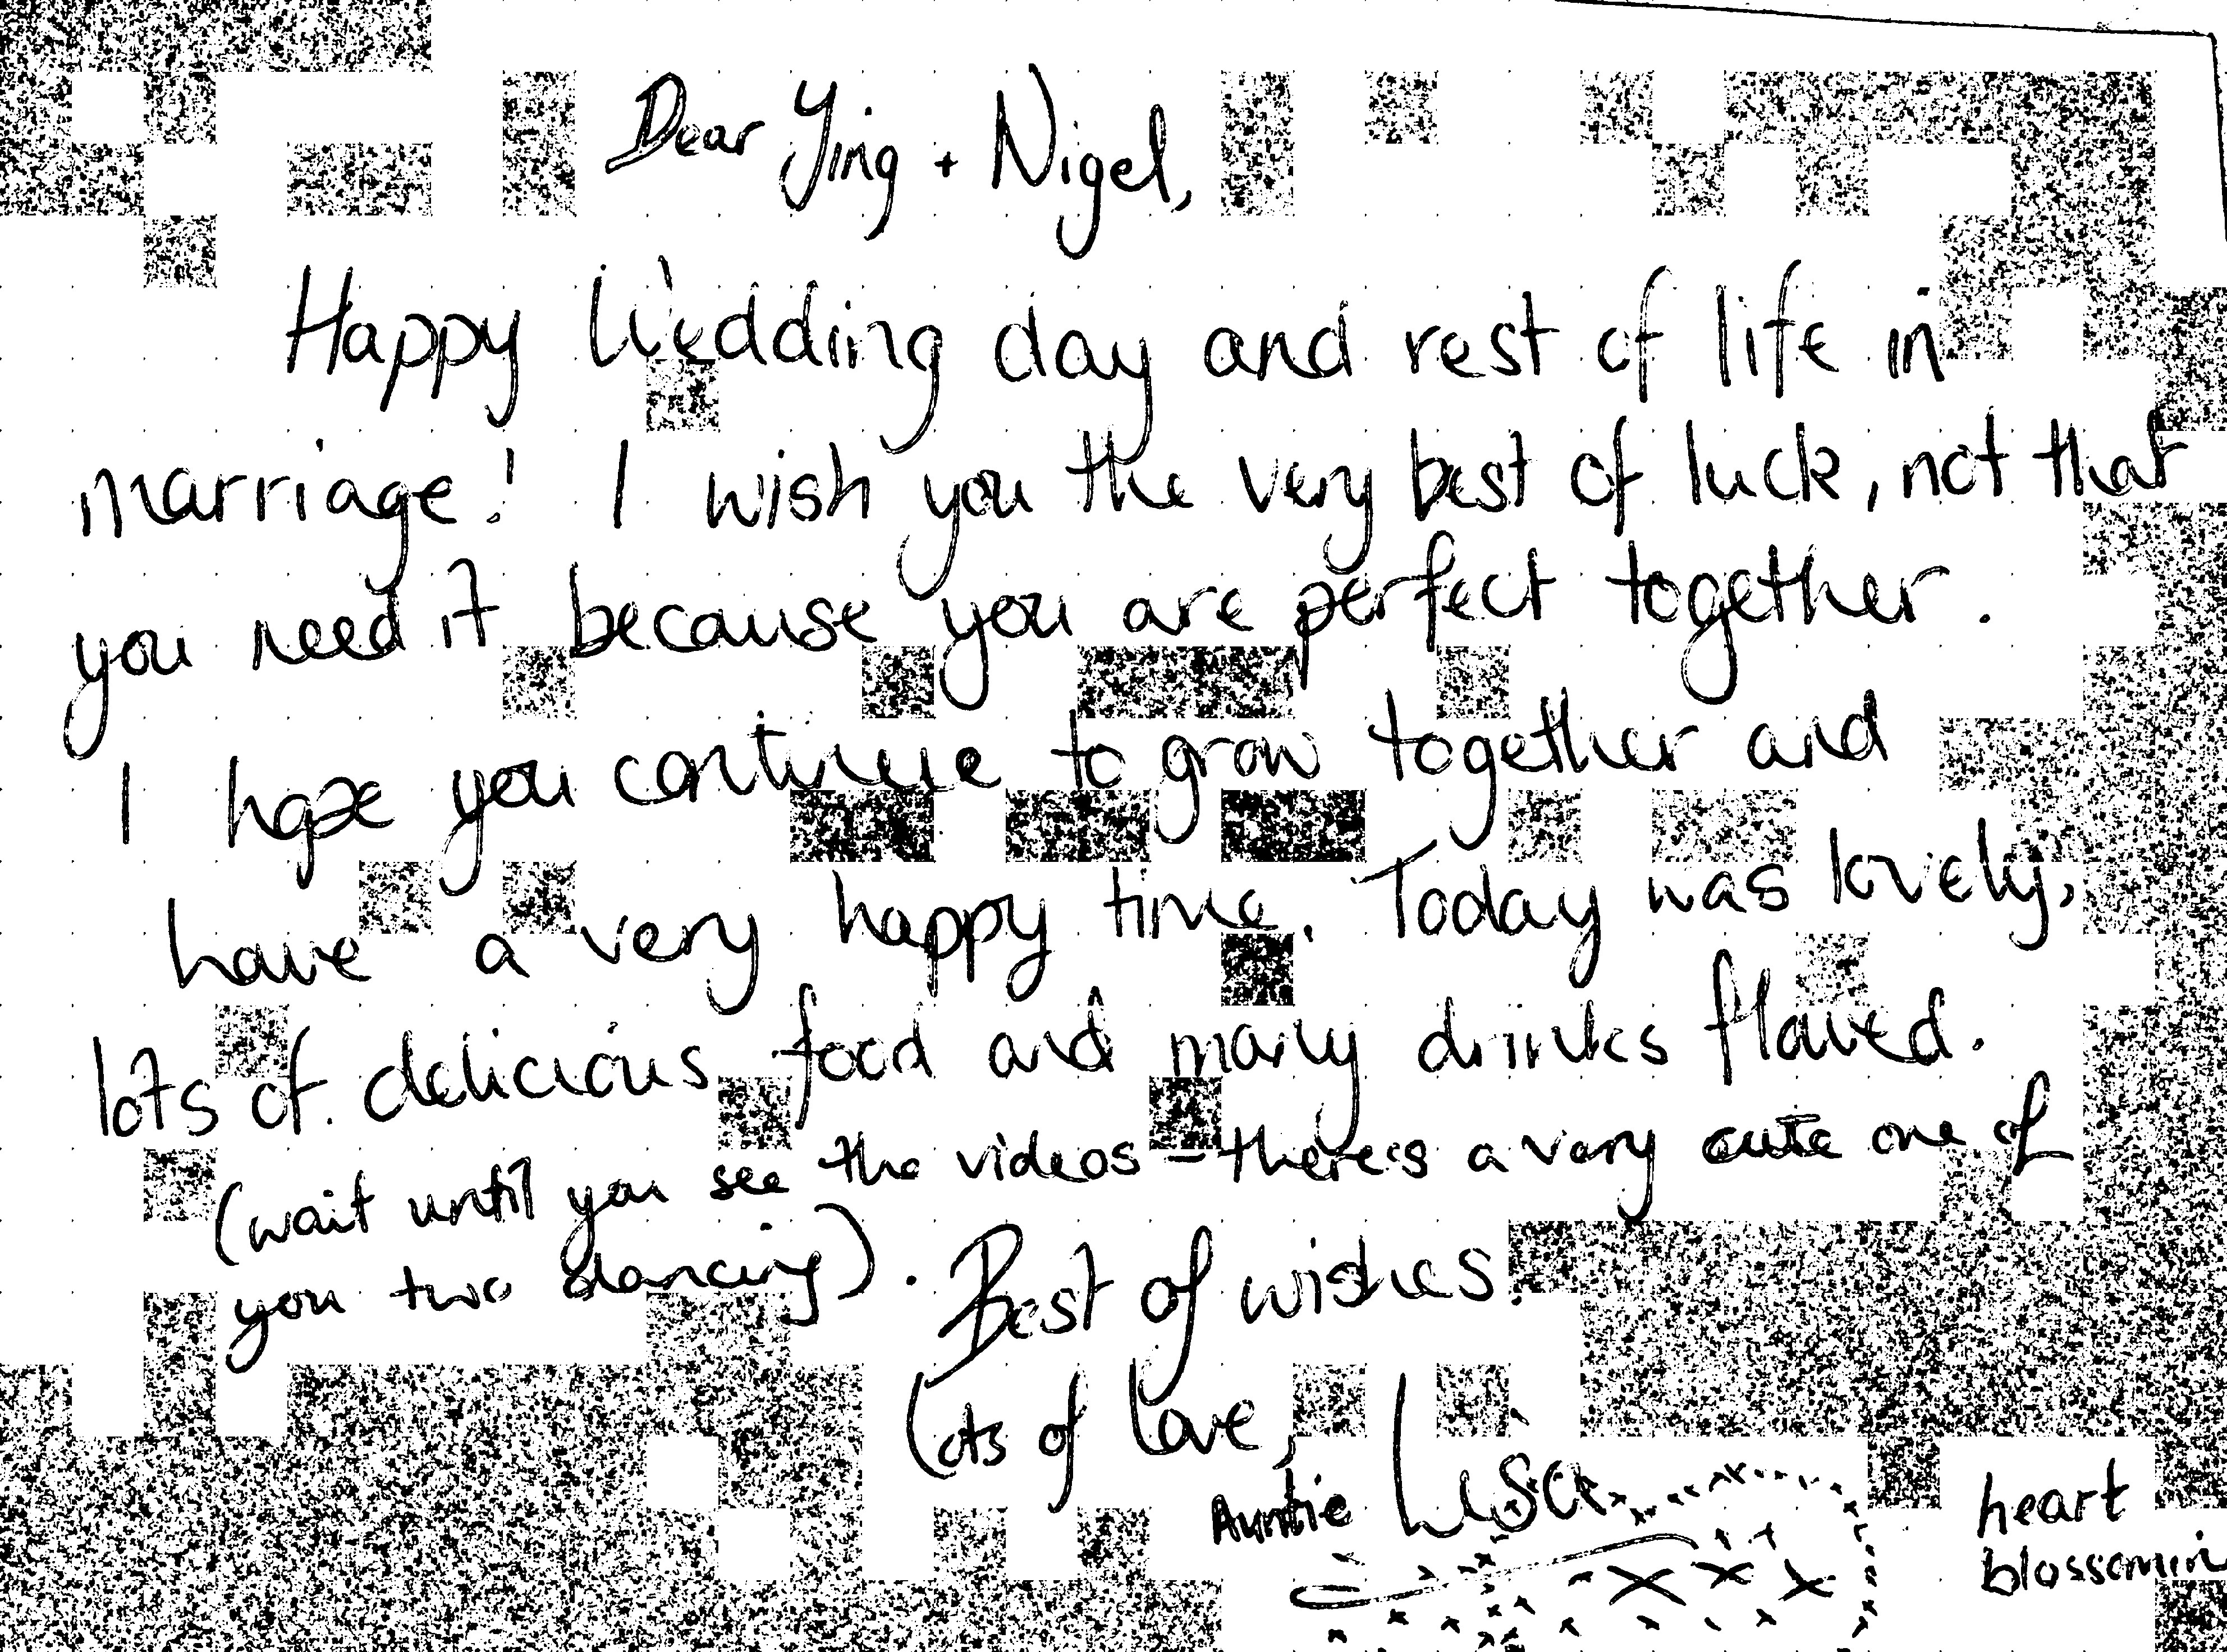 Dear Ying + Nigel,
Happy Wedding day and rest of life in
marriage! I wish you the very best of luck, not that
you need it because you are perfect together.
I hope you continue to grow together and
have a very happy time. Today was lovely,
lots of delicious food and many drinks flowed.
(wait until you see the videos - there's a very cute one of
you two dancing). Best of wishes.
Lots of love,
Auntie Lisa
xxx
heart
blossomin